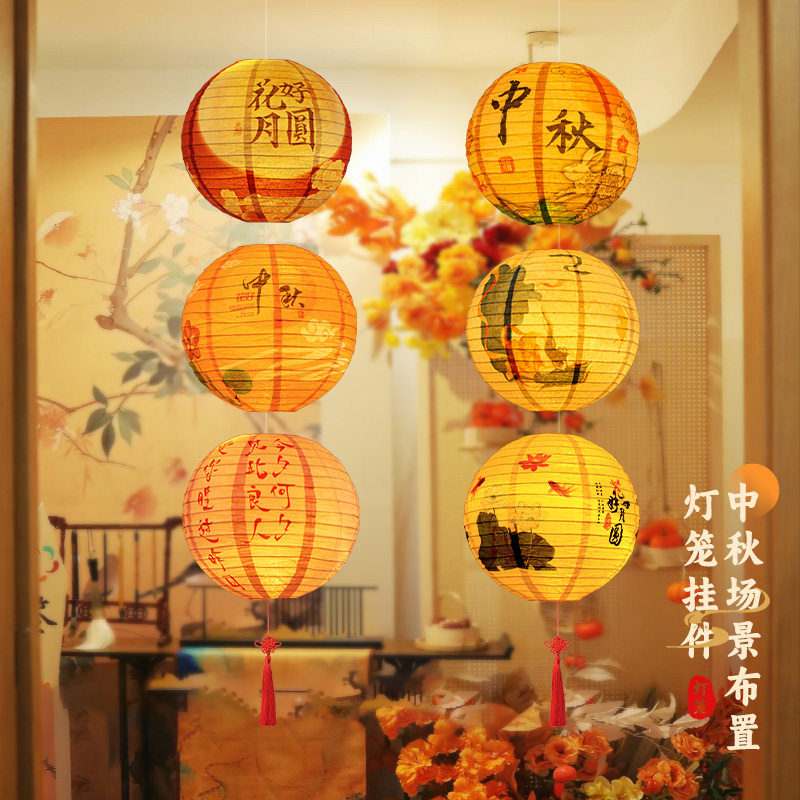 花好
月圓
中秋
中秋
今夕何夕
见此良人
花好月圆
中秋场景布置
灯笼挂件